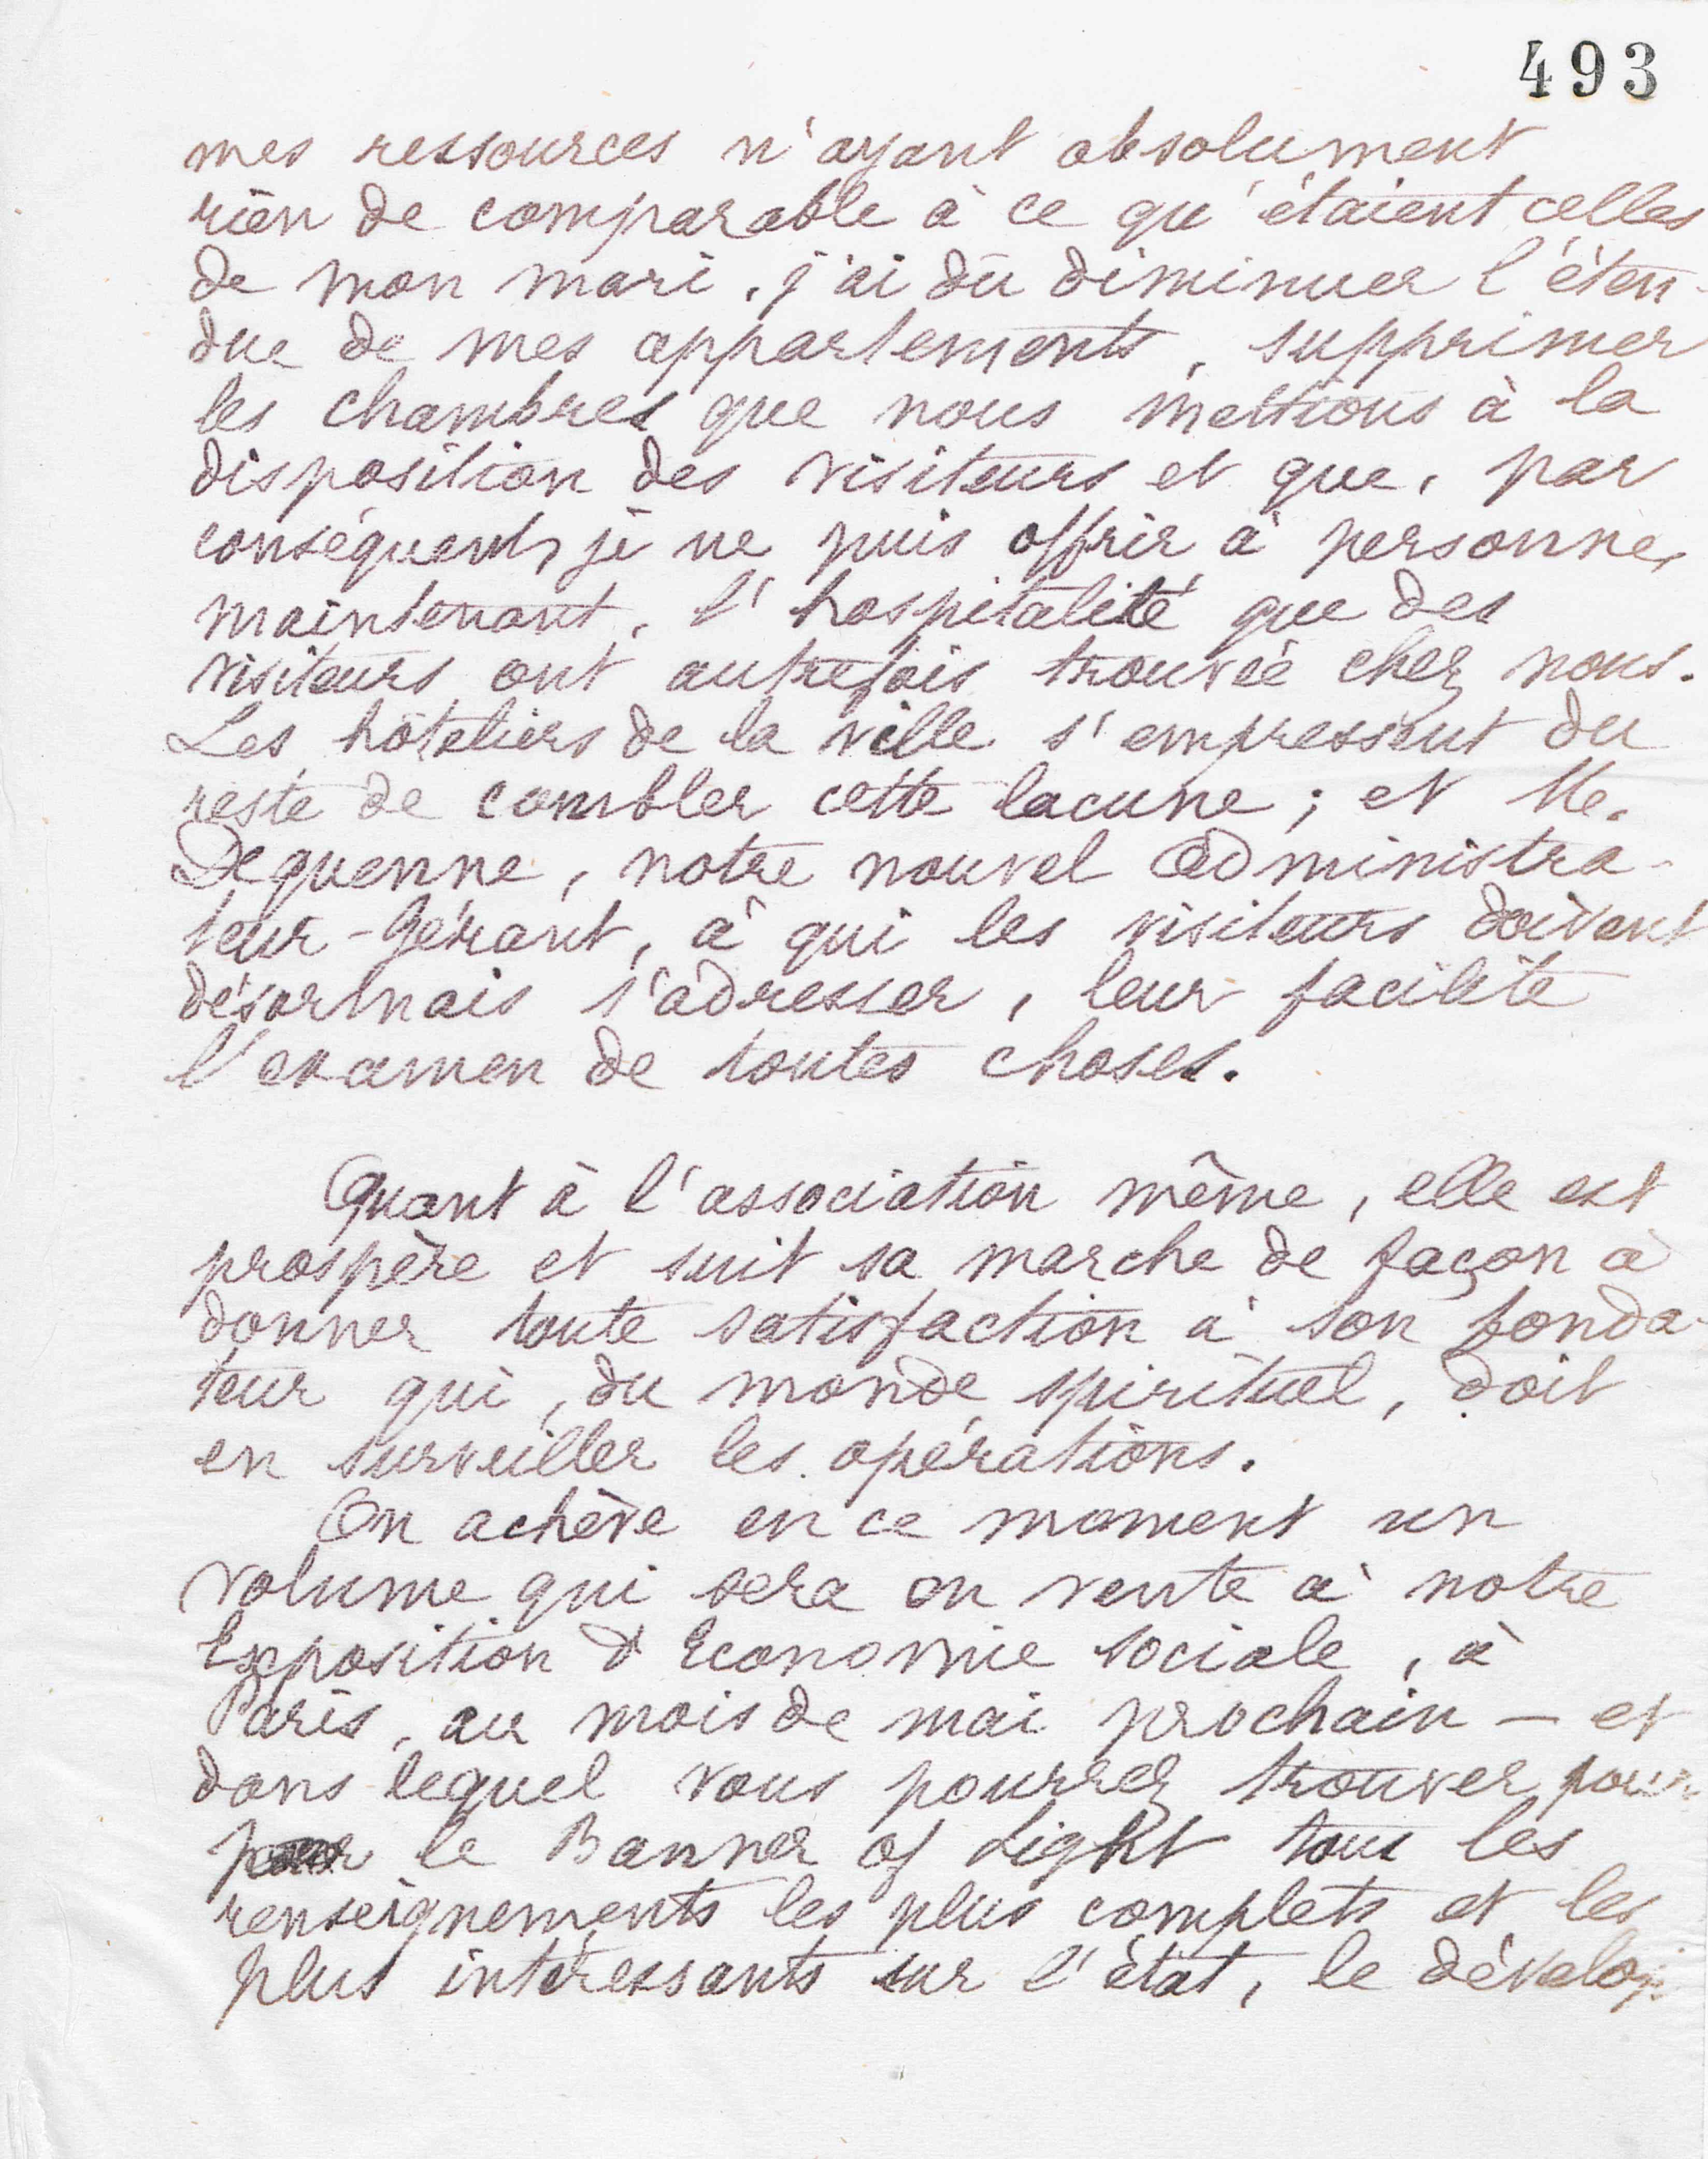 493
mes ressources n'ayant absolument
rien de comparable à ce qu'étaient celles
de mon mari, j'ai dû diminuer l'éten-
due de mes appartements, supprimer
les chambres que nous mettions à la
disposition des visiteurs et que, par
conséquent, je ne puis offrir à personne,
maintenant, l'hospitalité que des
visiteurs ont autrefois trouvée chez nous.
Les hôteliers de la ville s'empressent du
reste de combler cette lacune ; et Me.
Dequenne, notre nouvel administra-
teur-Gérant, à qui les visiteurs doivent
désormais s'adresser, leur facilite
l'examen de toutes choses.
Quant à l'association même, elle est
prospère et suit sa marche de façon à
donner toute satisfaction à son fonda-
teur qui, du monde spirituel, doit
en surveiller les opérations.
On achève en ce moment un
volume qui sera en vente à notre
Exposition d'Economie sociale, à
Paris, au mois de mai prochain — et
dans lequel vous pourrez trouver pour
le Banner of Light tous les
renseignements les plus complets et les
plus intéressants sur l'état, le dévelop-